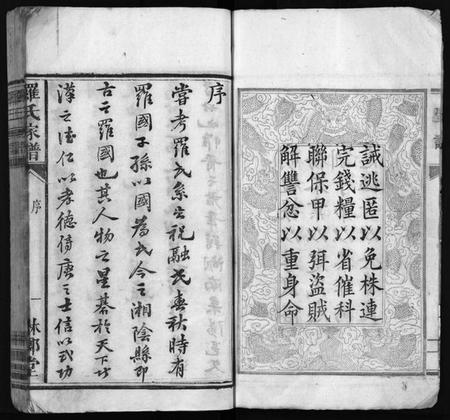 誡逃匿以免株連
完錢糧以省催科
聯保甲以弭盜賊
解讐忿以重身命
序
嘗考羅氏系出祝融氏春秋時有
羅國子孫以國為氏今之湘陰縣即
古之羅國也其人物之星碁於天下
漢之德仁以孝德傳唐之士信以武功
羅氏家譜
序
一
林鄉堂